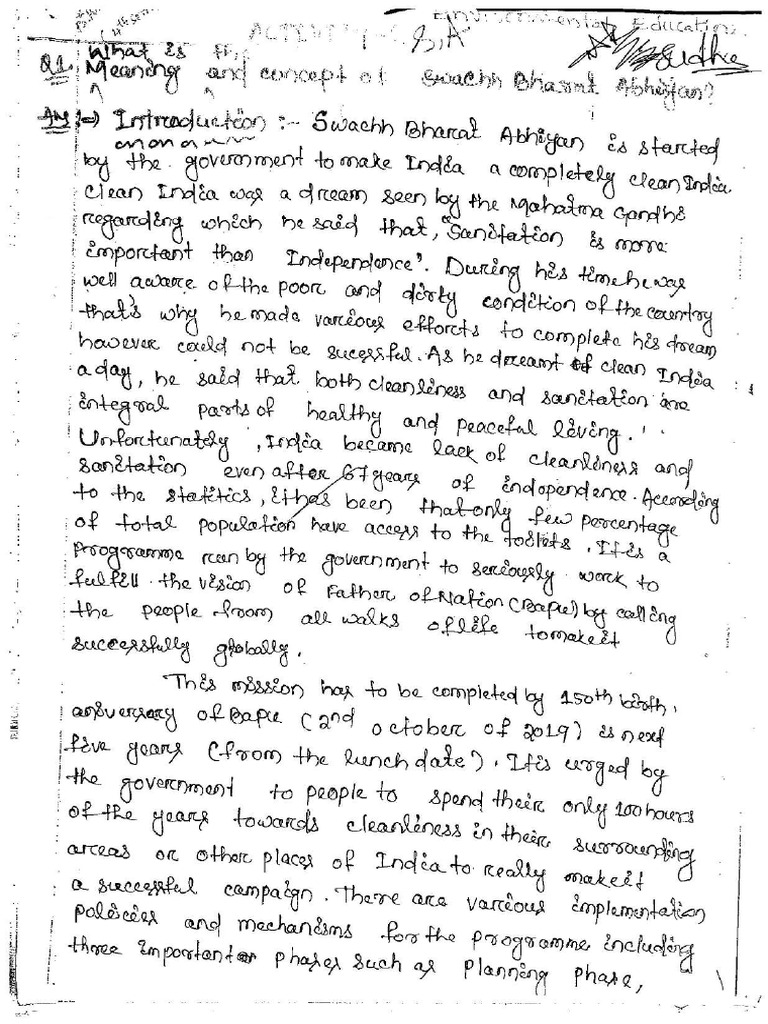 Environmental Education
ACTIVITY-
S.A
Sudha
What is
Q1. Meaning and concept of Swachh Bharat Abhiyan?
Ans:-) Introduction :- Swachh Bharat Abhiyan is started
by the government to make India a completely clean India
clean India was a dream seen by the Mahatma Gandhi
regarding which he said that, "Sanitation is more
important than Independence". During his time he was
well aware of the poor and dirty condition of the country
that's why he made various efforts to complete his dream
however could not be sucessful. As he dreamt of clean India
a day, he said that both cleanliness and sanitation are
integral parts of healthy and peaceful living.
Unfortunately, India became lack of cleanliness and
sanitation even after 67 years of independence. According
to the statitics, it has been that only few percentage
of total population have access to the toilets. It is a
programme run by the government to seriously work to
fulfill the vision of Father of Nation (Bapu) by calling
the people from all walks of life to make it
successfully globally.
This mission has to be completed by 150th birth
aniversary of Bapu (2nd october of 2019) is next
five years (from the lunch date). It is urged by
the government to people to spend their only 100 hours
of the years towards cleanliness in their surrounding
areas or other places of India to really make it
a successful campaign. There are various implementation
policies and mechanisms for the programme including
three important phases such as planning phase,